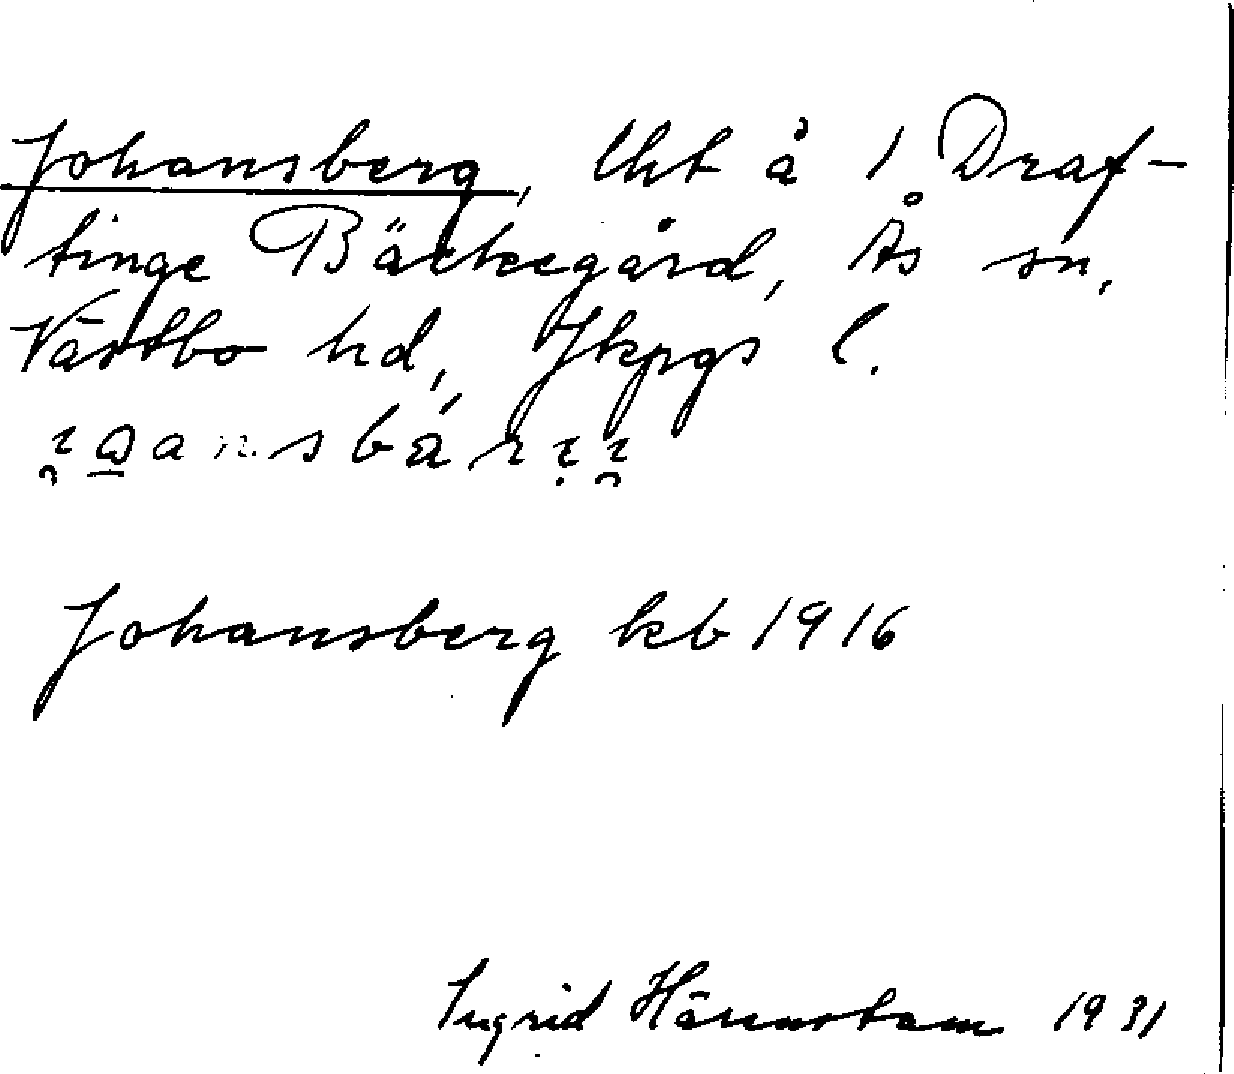 Johansberg, lht å 1 Draf-
tinge Bäckegård, Ås sn,
Västbo hd, Jkpgs l.
Johansberg kb 1916
Ingrid Härenstam 1931